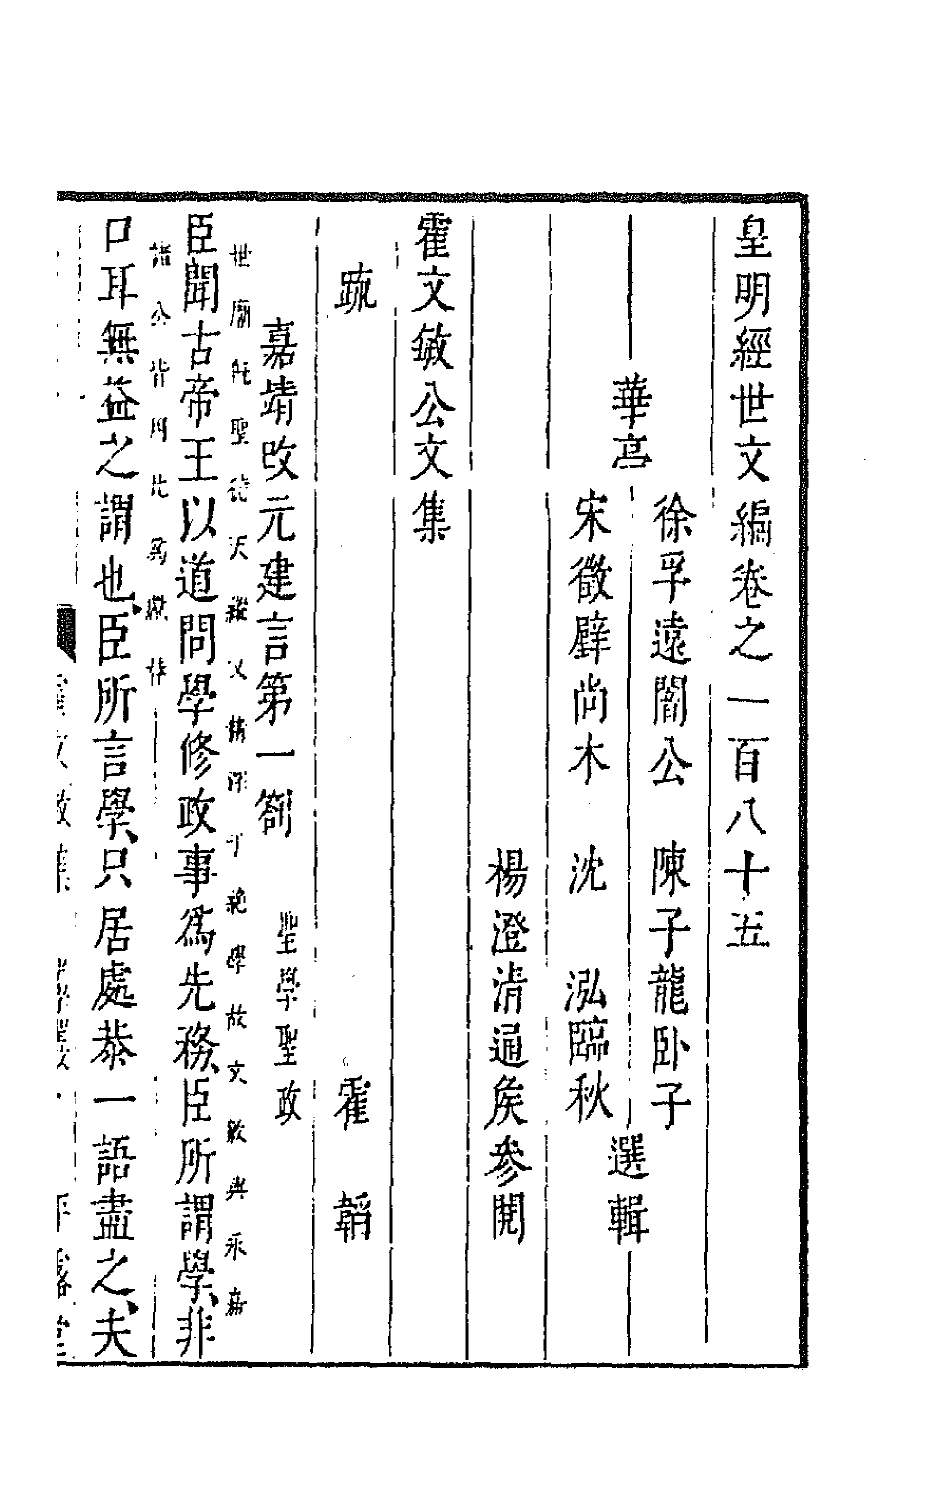 皇明經世文編卷之一百八十五
華亭
徐孚遠闇公 陳子龍卧子
宋徵璧尚木 沈 泓臨秋
選輯
楊澄清通矦參閱
霍文敏公文集
疏 霍 韜
嘉靖改元建言第一劄 聖學聖政
世廟旣聖徒天縱又精深于絶學故文敏與永嘉
臣聞古帝王以道問學修政事爲先務臣所謂學非
諸公皆用此爲獻替
口耳無益之謂也臣所言學只居處恭一語盡之夫
霍文敏集 平露堂